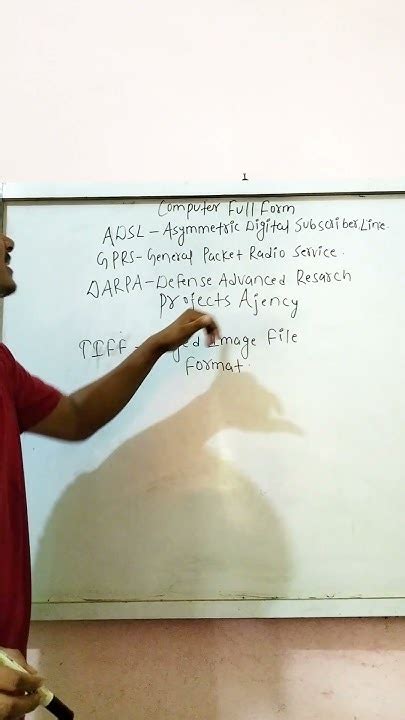 Computer Full Form
ADSL – Asymmetric Digital Subscriber Line.
GPRS – General Packet Radio Service.
DARPA – Defense Advanced Resarch
Projects Ajency
TIFF – Image File
Format.